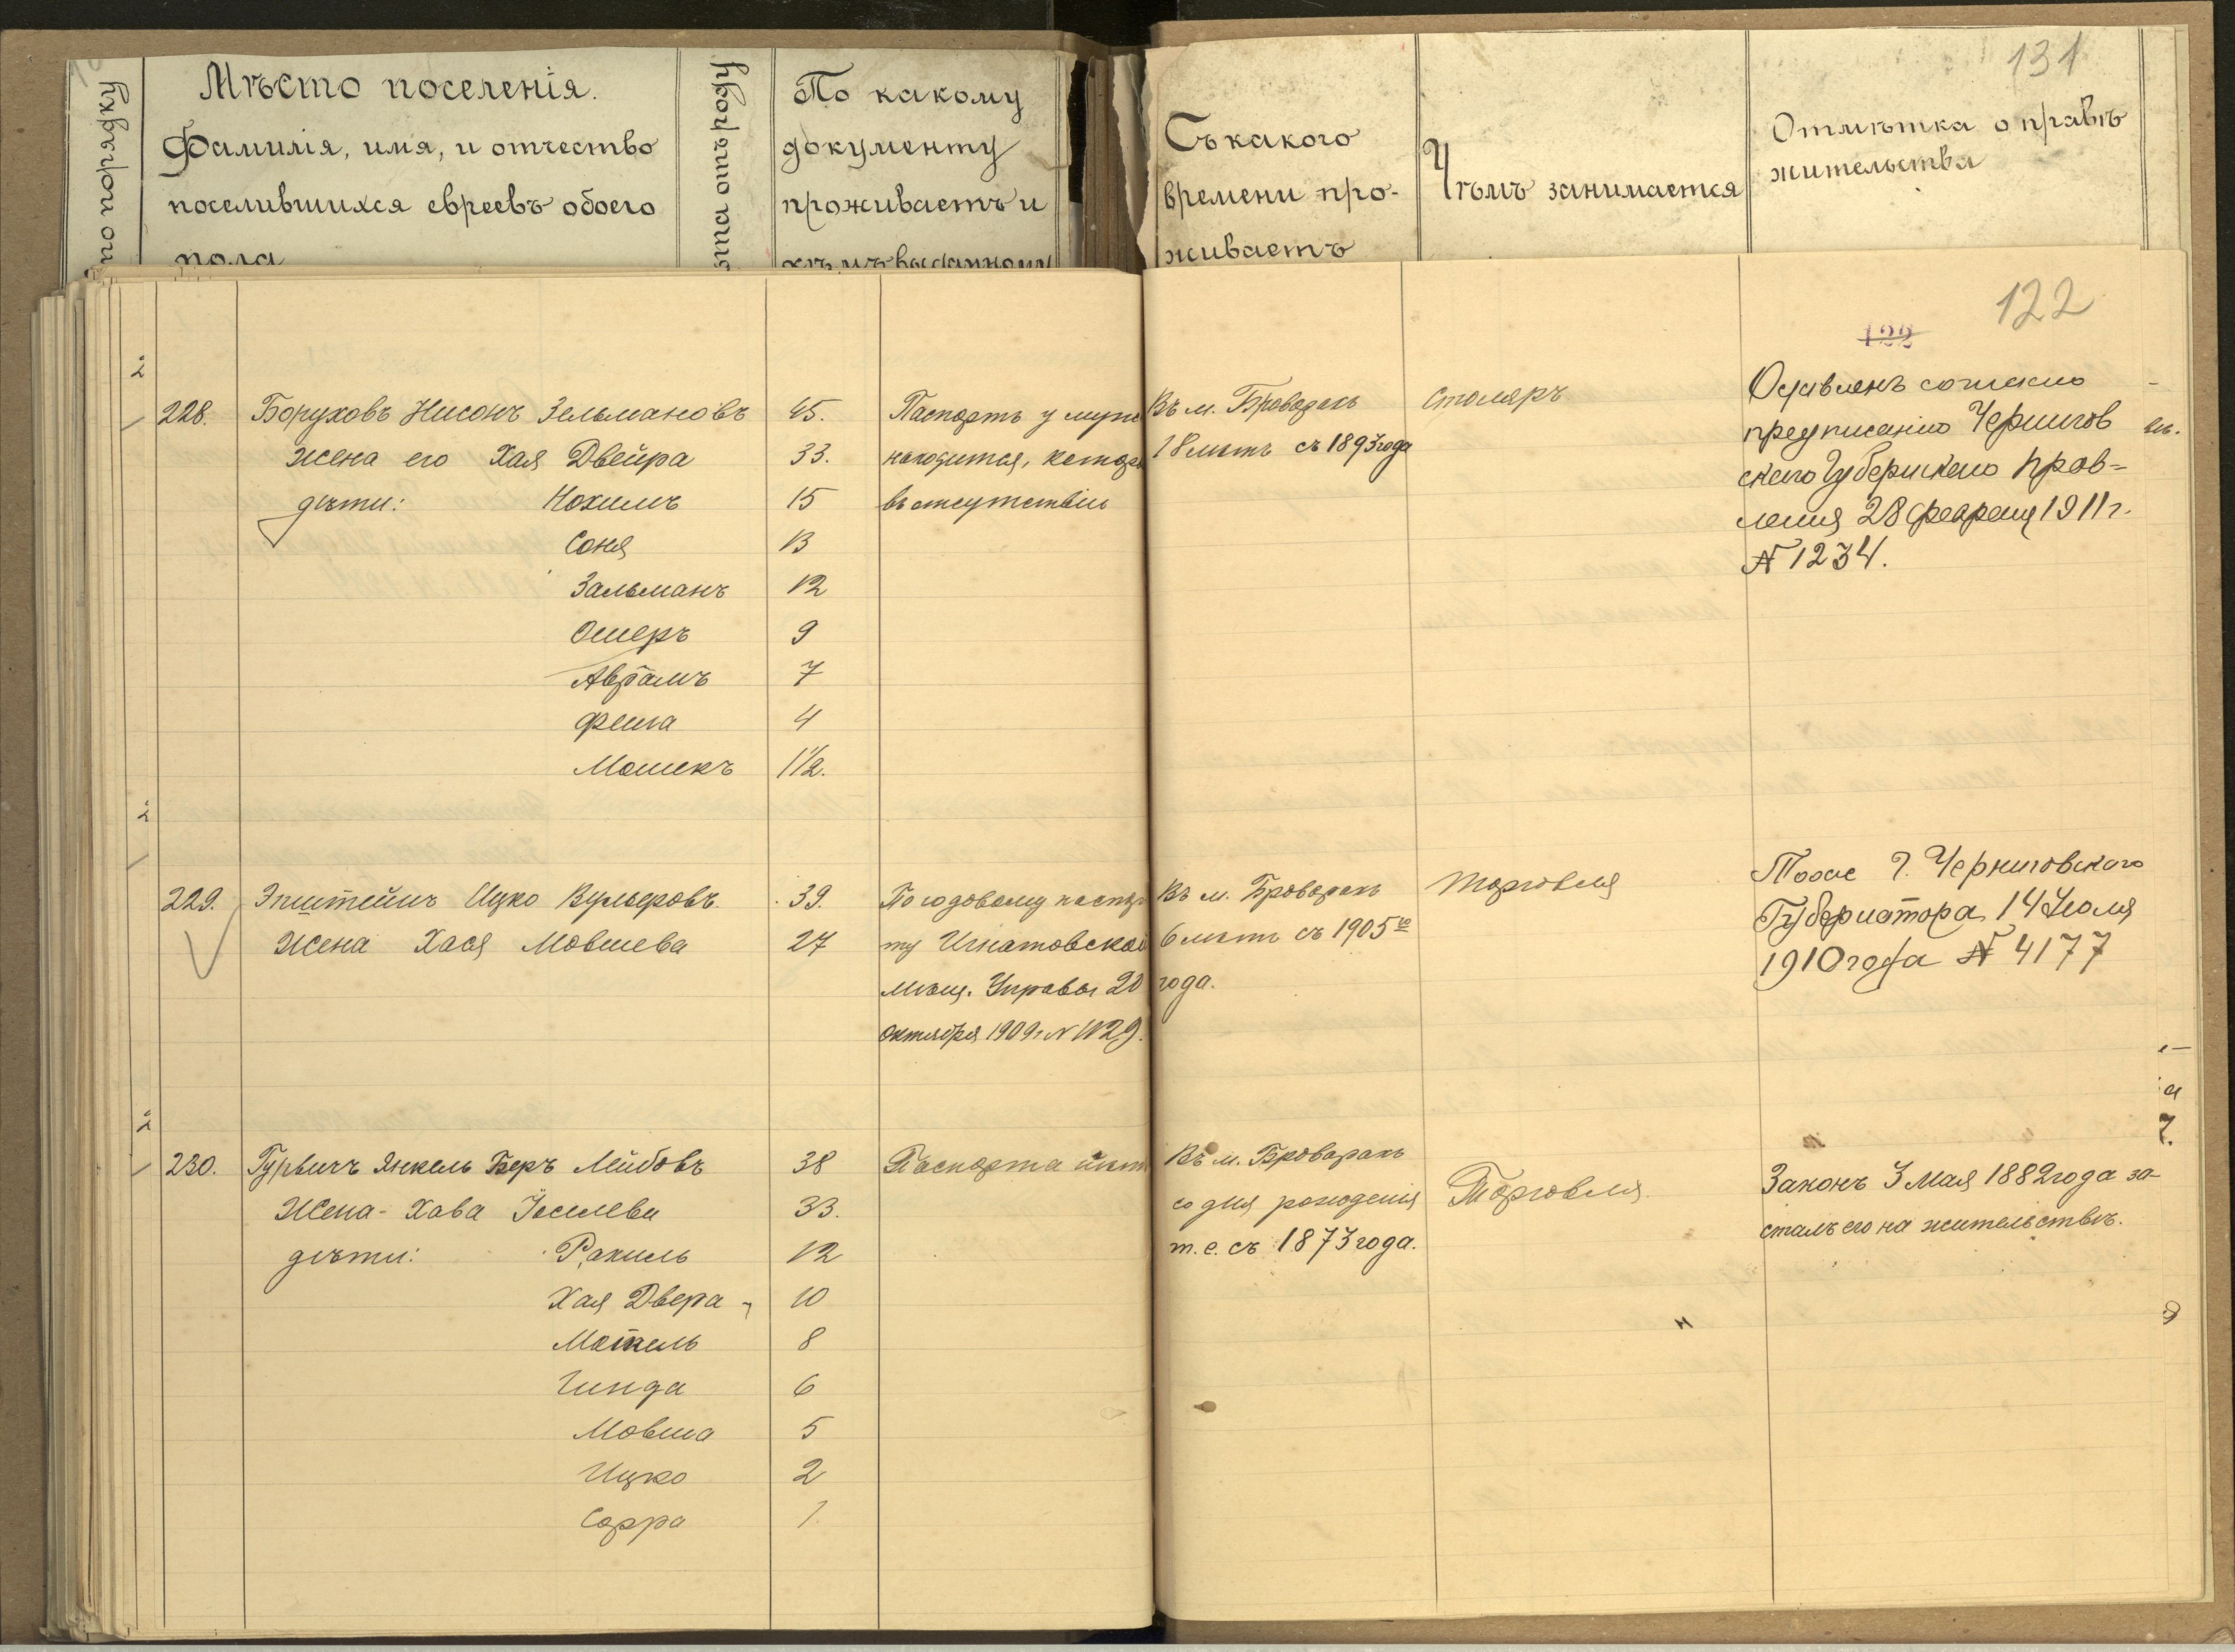 по порядку
Мѣсто поселенія.
Фамилія, имя, и отчество
поселившихся евреевъ обоего
пола
ѣта отъ роду
По какому
документу
проживаетъ и
кѣмъ выданному
131
Съ какого
времени про-
живаетъ
Чѣмъ занимается
Отмѣтка о правѣ
жительства
122
122
2
228. Боруховъ Нисонъ Зельмановъ 45.
Жена его Хая Двейра 33.
дѣти: Нохимъ 15
Соня 13
Зальманъ 12
Ошеръ 9
Аврамъ 7
Фейга 4
Мошекъ 1 1/2.
Паспортъ у мужа
находится, котор
въ отсутствіи
Въ м. Броварахъ
18 лѣтъ съ 1893 года
Столяръ
Оставленъ согласно
предписанію Чернигов
скаго Губернскаго Прав=
ленія 28 февраля 1911 г.
№ 1234.
2
229. Эпштейнъ Ицко Вульфовъ. 39.
Жена Хася Мовшева 27
По годовому паспор
ту Игнатовской
мѣщ. Управы 20
октября 1909 г. № 1129.
Въ м. Броварахъ
6 лѣтъ съ 1905 го
года.
Торговля
Г. Черниговскаго
Губернатора 14 Іюля
1910 года № 4177
2
230. Гурвичъ Янкель Беръ Лейбовъ 38
Жена - Хава Іоселева 33.
дѣти: Рахиль 12
Хая Двера 10
Мотель 8
Гинда 6
Мовша 5
Ицко 2
Сорра 1.
Паспорта нѣт
Въ м. Броварахъ
со дня рожденія
т.е. съ 1873 года.
Торговля
Законъ 3 Мая 1882 года за-
сталъ его на жительствѣ.